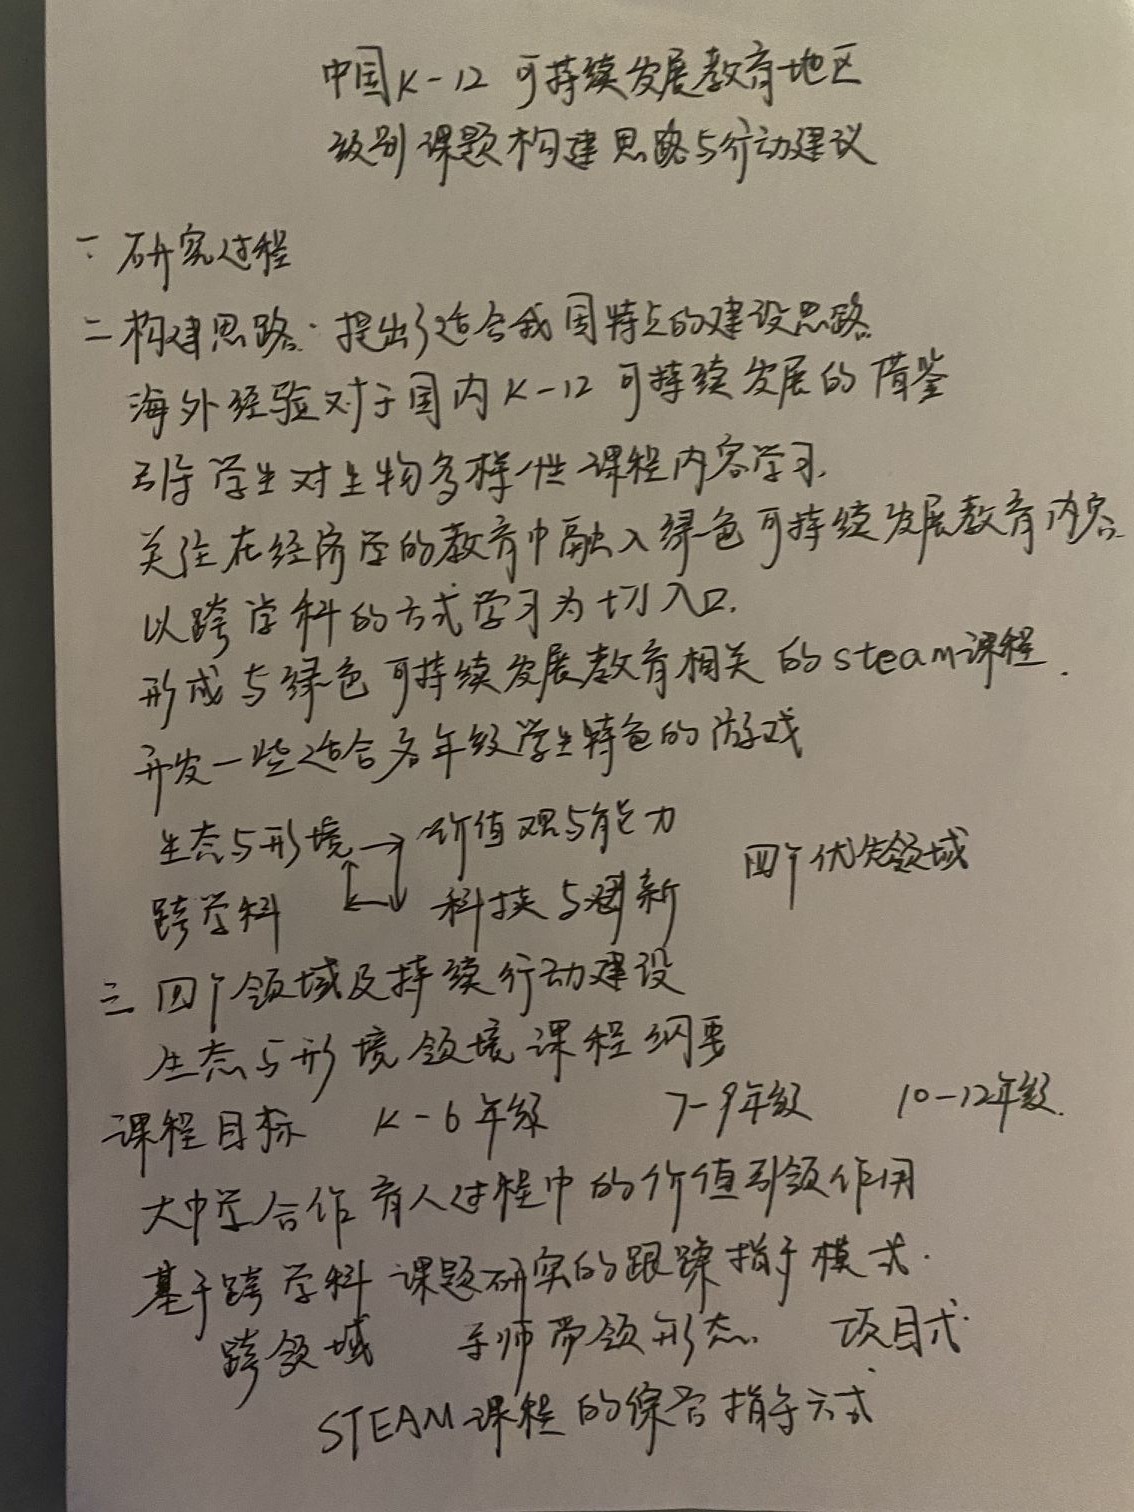 中国K-12 可持续发展教育地区
级别课题构建思路与行动建议
一. 研究过程
二 构建思路. 提出了适合我国特点的建设思路
海外经验对于国内K-12可持续发展的借鉴
引导学生对生物多样性课程内容学习.
关注在经济学的教育中融入绿色可持续发展教育内容
以跨学科的方式学习为切入口.
形成与绿色可持续发展教育相关的steam课程.
开发一些适合各年级学生特色的游戏
生态与形境 → 价值观与能力
四个优先领域
跨学科 科技与创新
三 四个领域及持续行动建设
生态与形境领境课程纲要
课程目标 K-6年级 7-9年级 10-12年级.
大中学合作育人过程中的价值引领作用
基于跨学科课题研究的跟踪指导模式.
跨领域 导师带领形态. 项目式
STEAM课程的综合指导方式